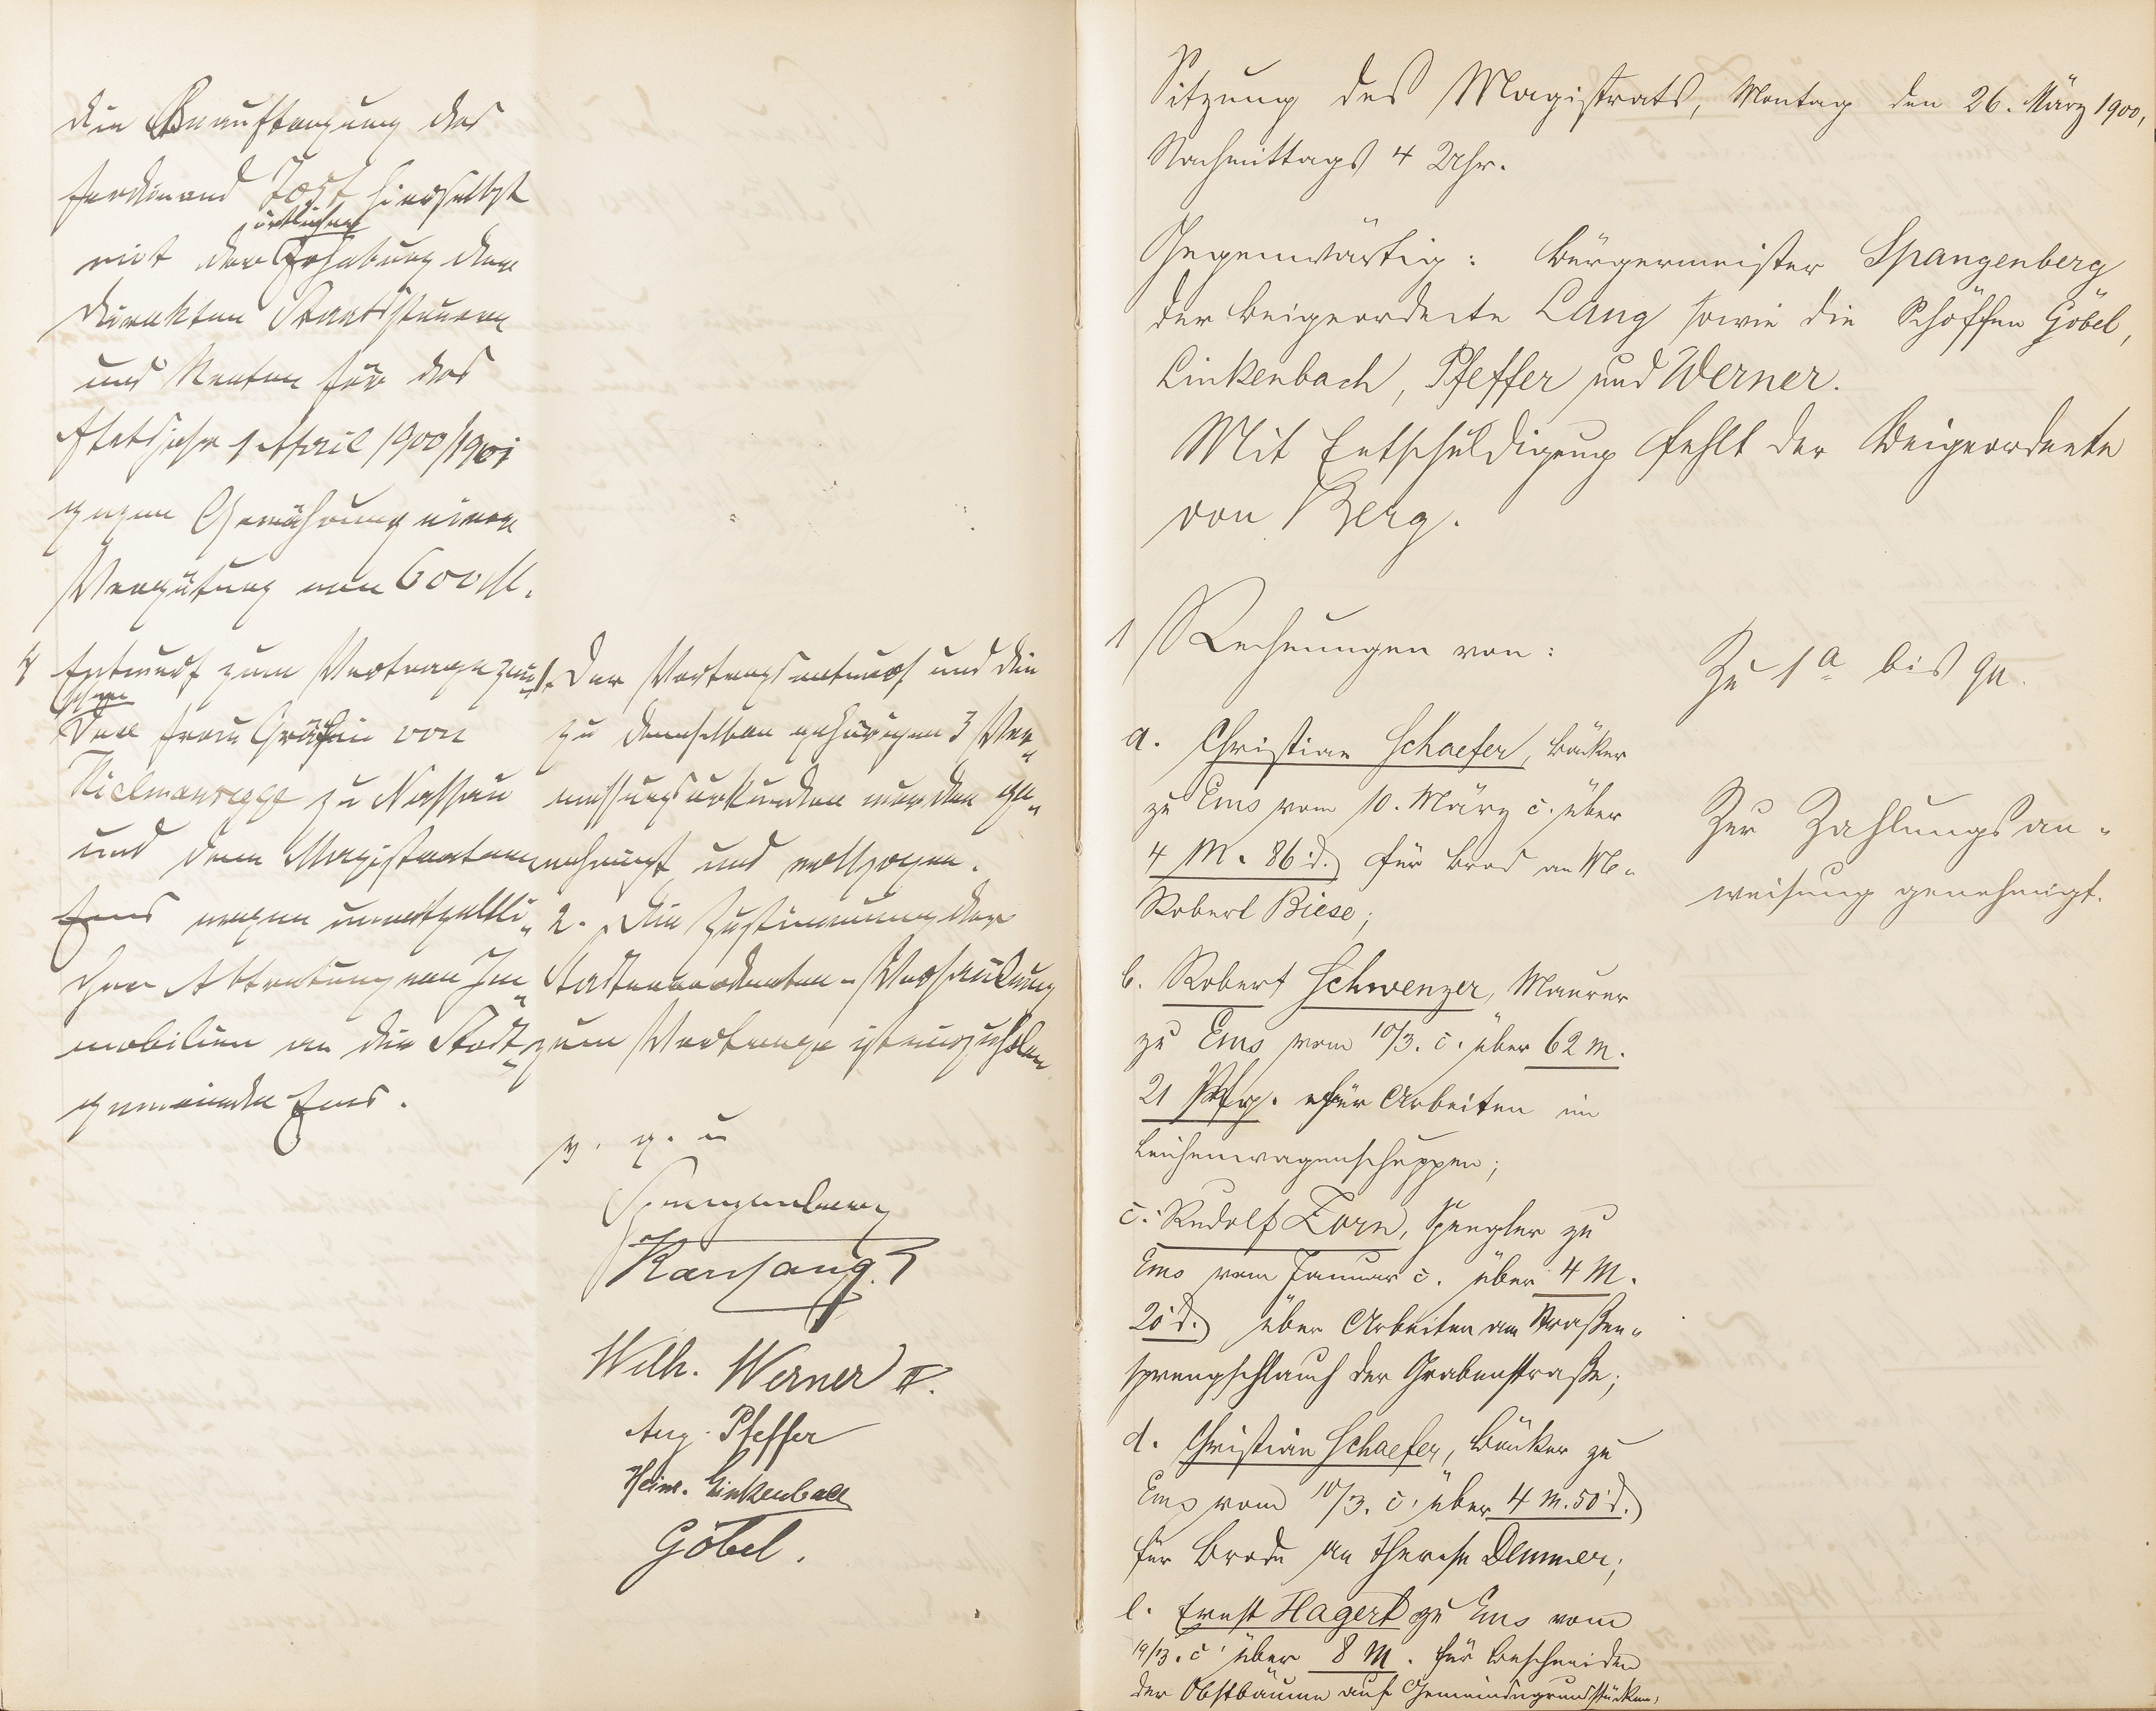 die Beauftragung des
Ferdinand Jost hierselbst
örtlichen
mit der Erhebung der
direkten Staatssteuern
und Renten für das
Etatsjahr 1 April 1900/1901
gegen Gewährung einer
Vergütung von 600 M.
4 Entwurf zum Vertrage zwischen
der Frau Gräfin von
Kielmansegge zu Nassau
und dem Magistrat
Ems wegen unentgeltli-
cher Abtretung von Im-
mobilien an die Stadt-
gemeinde Ems.
1. Der Vertragsentwurf und die
zu demselben gehörigen 3 Ver-
messungsurkunden werden ge-
nehmigt und vollzogen.
2. Die Zustimmung der
Stadtverordneten-Versammlung
zum Vertrage ist einzuholen
v. g. u
Spangenberg
Wilh. Werner II.
Aug. Pfeffer
Heinr. Linkenbach
Göbel.
Sitzung des Magistrats, Montag den 26. März 1900,
Nachmittags 4 Uhr.
Gegenwärtig: Bürgermeister Spangenberg
der Beigeordnete Lang sowie die Schöffen Göbel,
Linkenbach, Pfeffer und Werner.
Mit Entschuldigung fehlt der Beigeordnete
von Berg.
1 Rechnungen von:
Zu 1a bis qu.
a. Christian Schaefer, Bäcker
zu Ems vom 10. März c. über
4 M. 86 d. für Brod an
Robert Biese;
Zur Zahlungsan-
weisung genehmigt.
b. Robert Schwenzer, Maurer
zu Ems vom 10/3. c. über 62 M.
21 Pfg. für Arbeiten im
Leichenwagenschuppen;
c. Rudolf Zorn, Spengler zu
Ems vom Januar c. über 4 M.
20 d. über Arbeiten am Straßen-
sprengschlauch der Grabenstraße;
d. Christian Schaefer, Bäcker zu
Ems vom 10/3. c. über 4 M. 50 d.
für Brode an Therese Demmer;
e. Ernst Hagert zu Ems vom
19/3. c. über 8 M. für Beschneiden
der Obstbäume auf Gemeindegrundstücken;